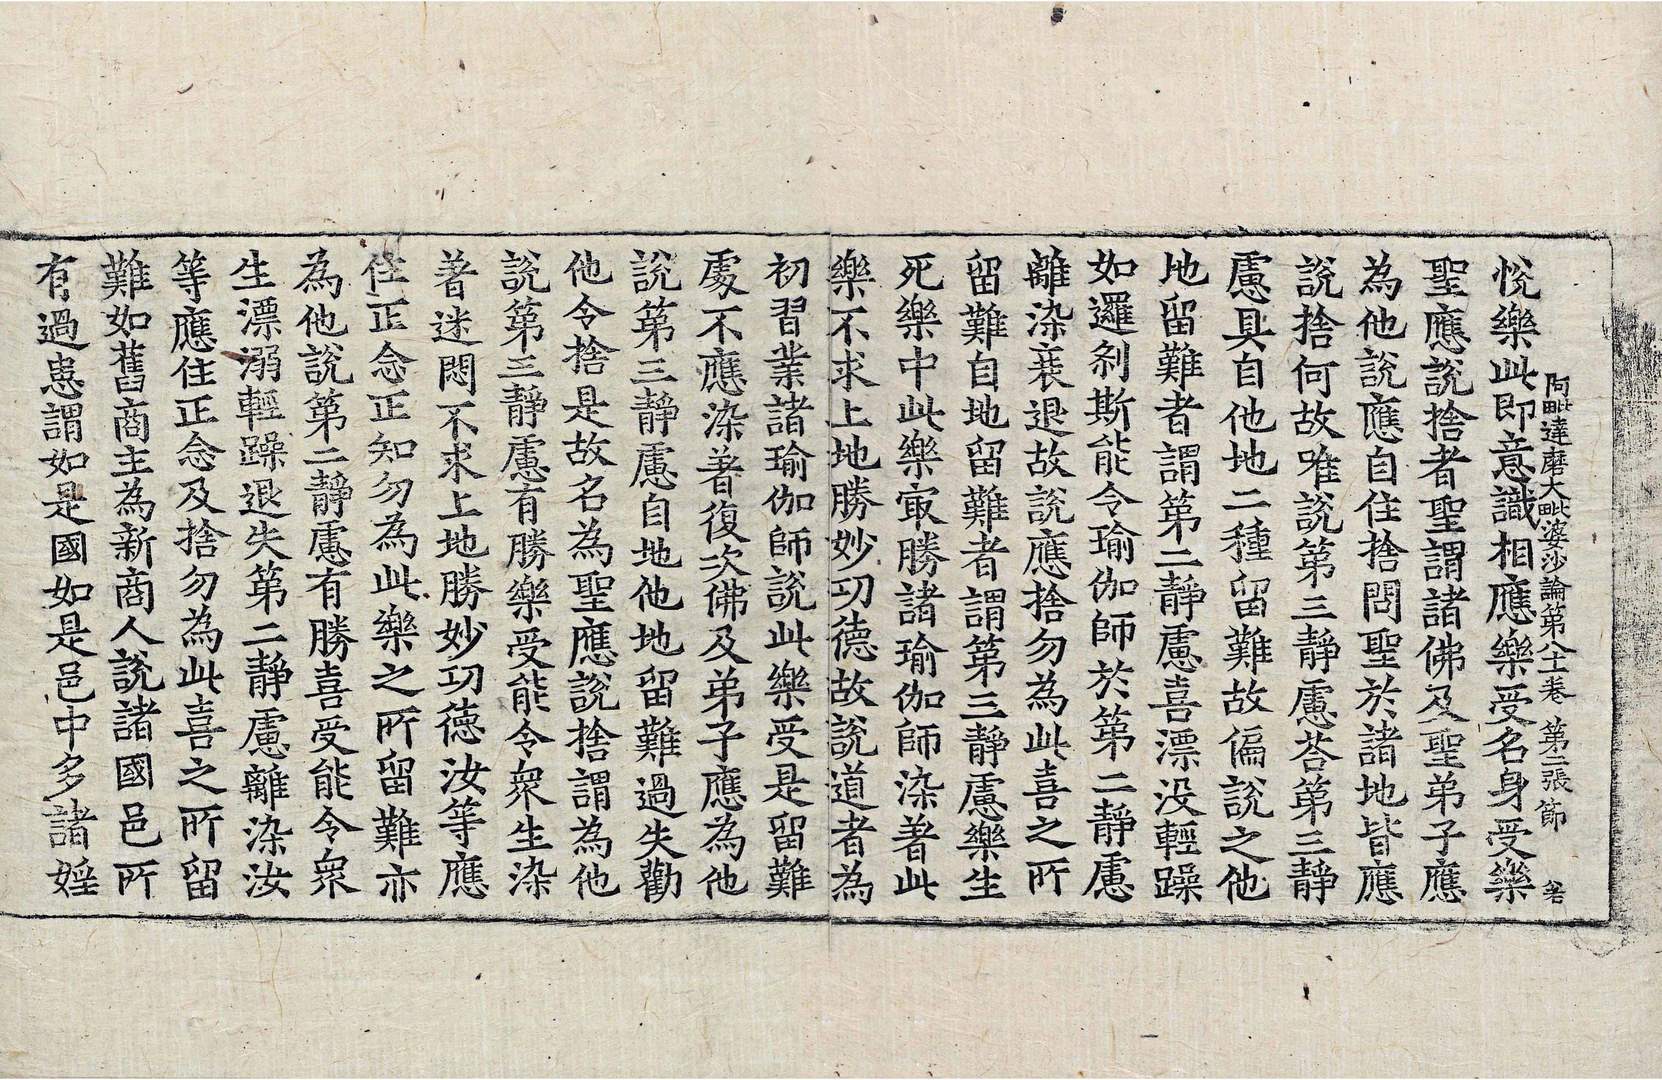 阿毗達磨大毗婆沙論第八十卷 第二張 節
悅樂此即意識相應樂受名身受樂
聖應說捨者聖謂諸佛及聖弟子應
為他說應自住捨問聖於諸地皆應
說捨何故唯說第三靜慮荅第三靜
慮具自他地二種留難故偏說之他
地留難者謂第二靜慮喜漂没輕躁
如邏剎斯能令瑜伽師於第二靜慮
離染衰退故說應捨勿為此喜之所
留難自地留難者謂第三靜慮樂生
死樂中此樂㝡勝諸瑜伽師染著此
樂不求上地勝妙功德故說道者為
初習業諸瑜伽師說此樂受是留難
處不應染著復次佛及弟子應為他
說第三靜慮自地他地留難過失勸
他令捨是故名為聖應說捨謂為他
說第三靜慮有勝樂受能令衆生染
著迷悶不求上地勝妙功德汝等應
住正念正知勿為此樂之所留難亦
為他說第二靜慮有勝喜受能令衆
生漂溺輕躁退失第二靜慮離染汝
等應住正念及捨勿為此喜之所留
難如舊商主為新商人說諸國邑所
有過患謂如是國如是邑中多諸婬